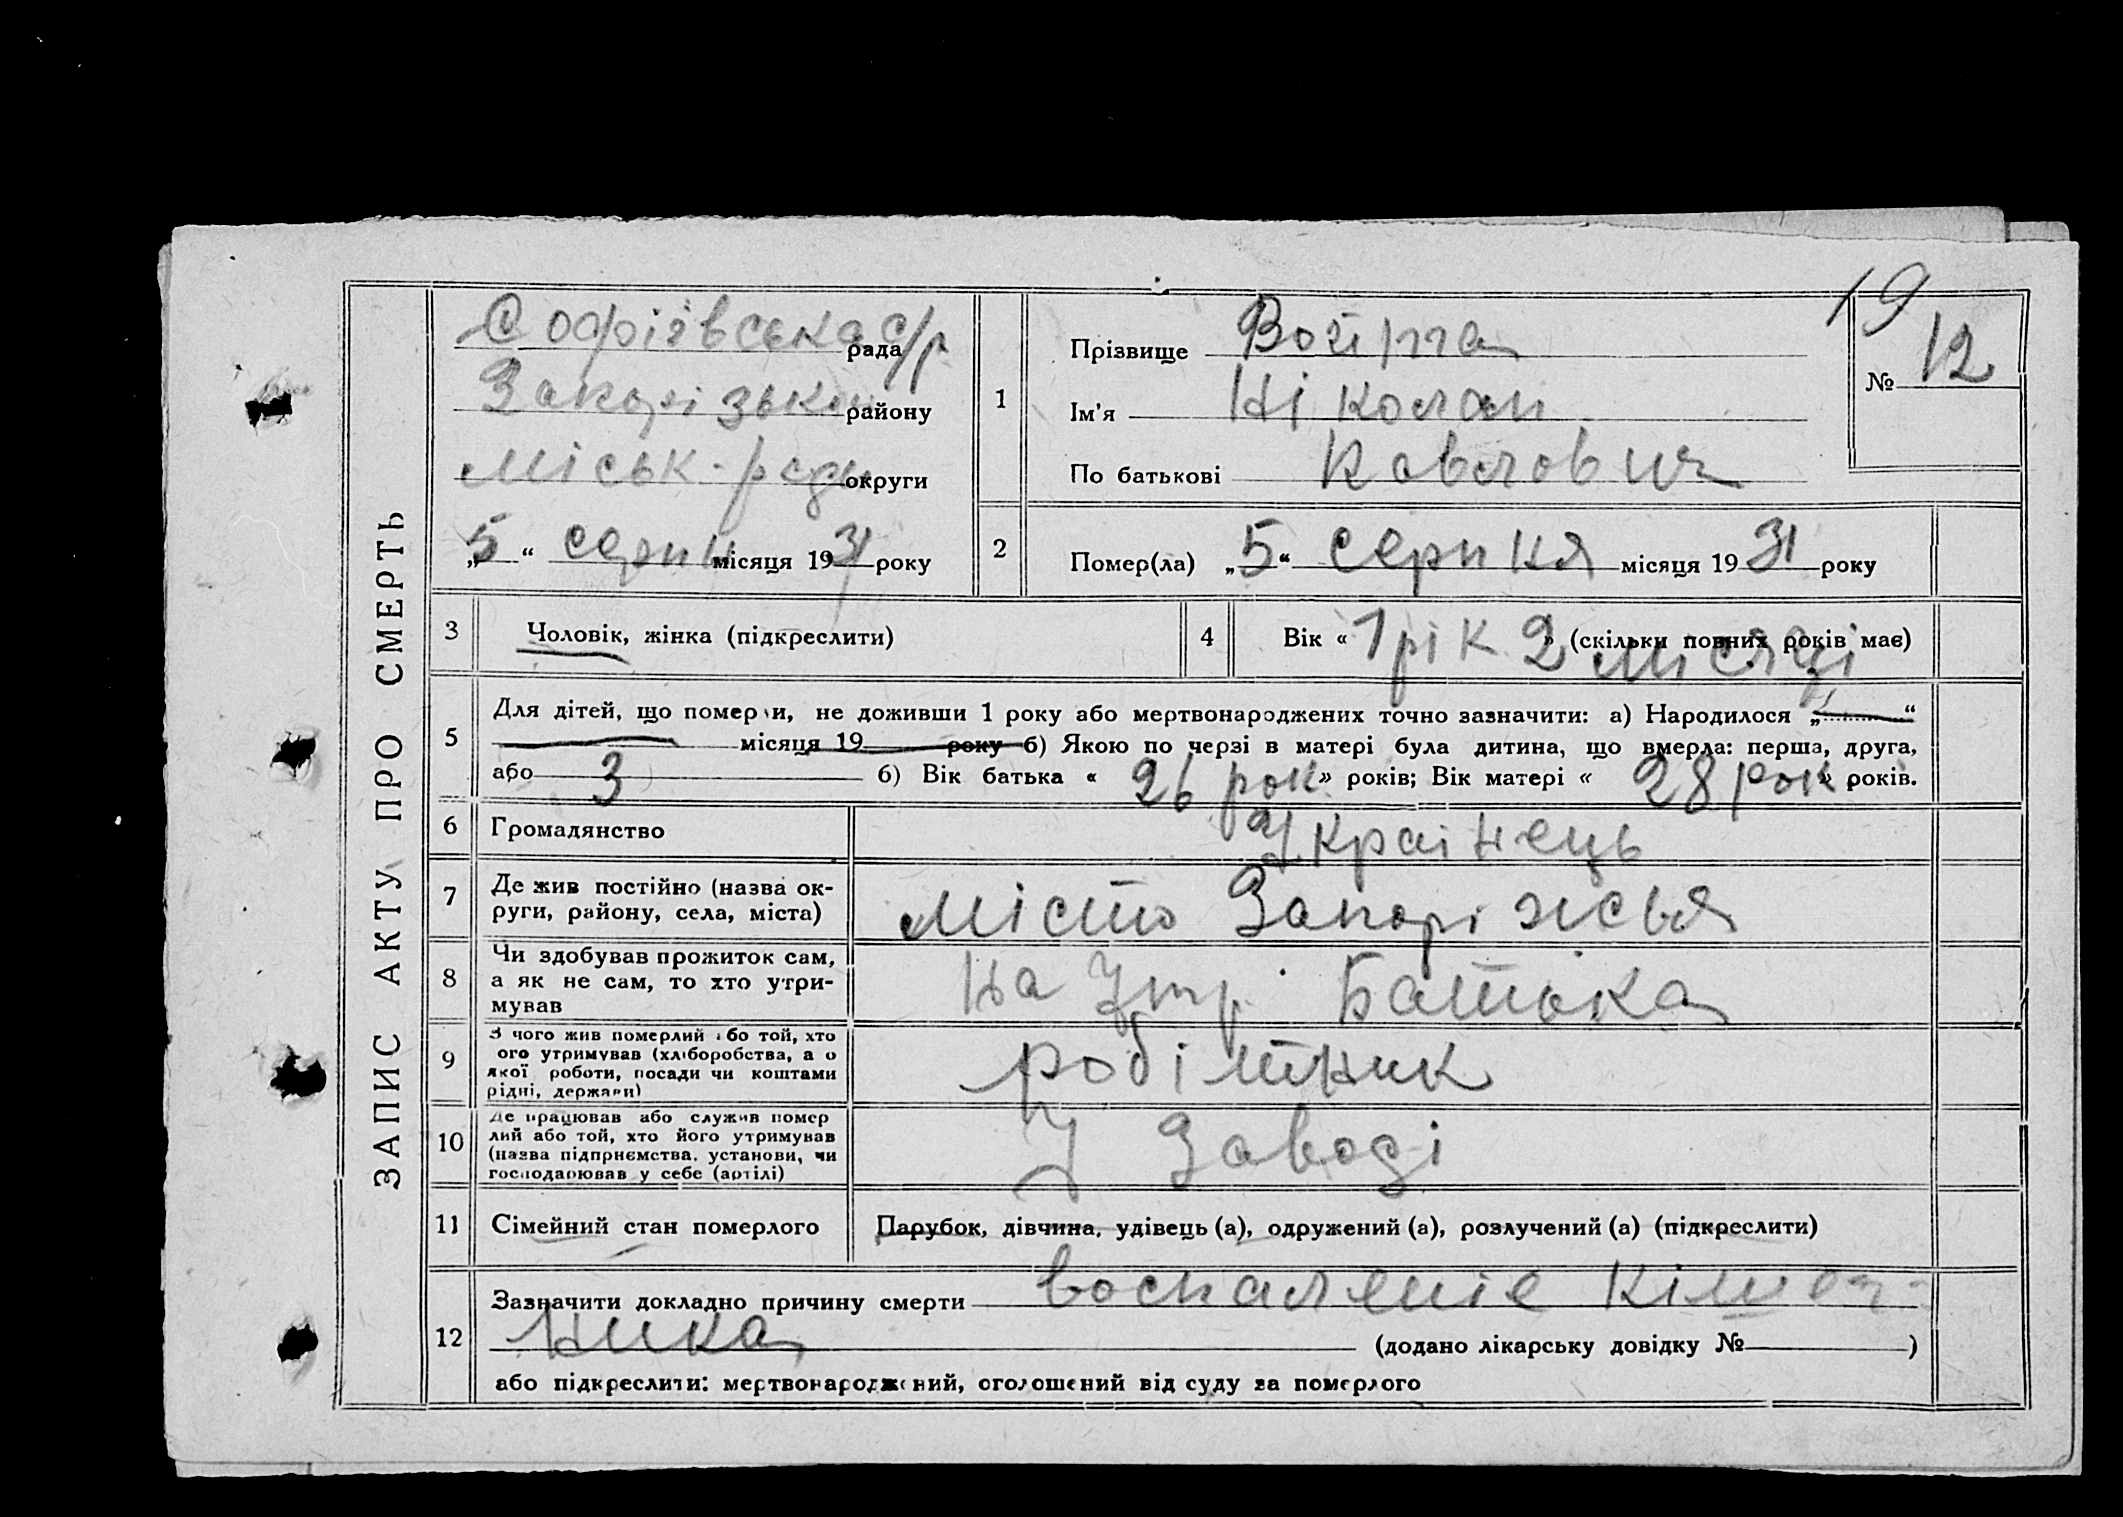 ЗАПИС АКТУ ПРО СМЕРТЬ
Софіївська с/р рада
Запорізької району
міськ-ради округи
„5“ серпня місяця 1931 року
19
№ 12
1 Прізвище
Ім'я Ніколай
По батькові Павлович
2 Помер(ла) „5“ серпня місяця 1931 року
3 Чоловік, жінка (підкреслити)
4 Вік « 1 рік 2 місяці » (скільки повних років має)
5 Для дітей, що померли, не доживши 1 року або мертвонароджених точно зазначити: а) Народилося „ “
місяця 19 року б) Якою по черзі в матері була дитина, що вмерла: перша, друга,
або 3 б) Вік батька « 26 рок » років; Вік матері « 28 рок » років.
6 Громадянство Українець
7 Де жив постійно (назва округи, району, села, міста) місто Запоріжжя
8 Чи здобував прожиток сам,
а як не сам, то хто утри-
мував
на утр. Батька
9 З чого жив померлий або той, хто
ого утримував (хліборобства, а о
якої роботи, посади чи коштами
рідні, держави)
робітник
10 Де працював або служив помер
лий або той, хто його утримував
(назва підприємства, установи, чи
господарював у себе (артілі)
У Заводі
11 Сімейний стан померлого Парубок, дівчина, удівець (а), одружений (а), розлучений (а) (підкреслити)
12 Зазначити докладно причину смерти воспаленіе кішеч-
ника (додано лікарську довідку № )
або підкреслити: мертвонароджений, оголошений від суду за померлого